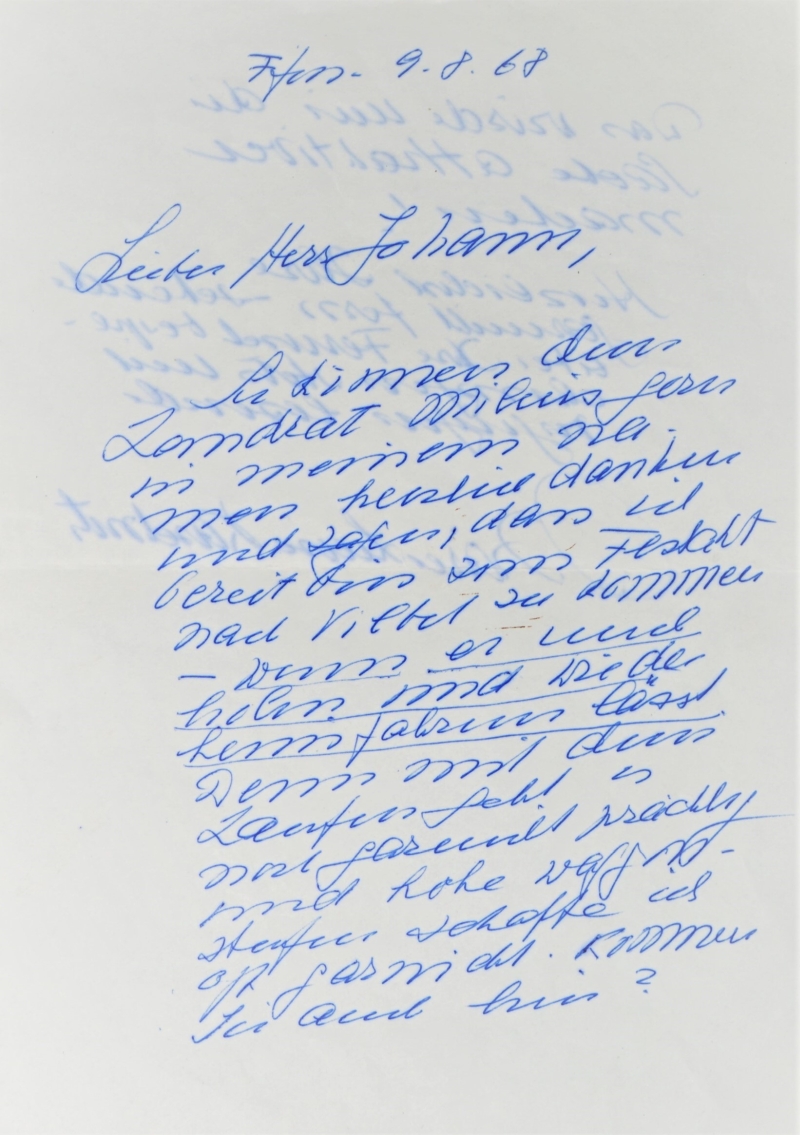 Ffm. 9.8.68
Lieber Herr Johann,
Sie können dem
Landrat Milius gern
in meinem Na-
men herzlich danken
und sagen, dass ich
bereit bin zum Festakt
nach Vilbel zu kommen
– wenn er mich
holen und wieder
heimfahren lässt.
Denn mit dem
Laufen geht es
noch garnicht prächtig
und hohe Waggon-
stufen schaffe ich
oft garnicht. Kommen
Sie auch hin?